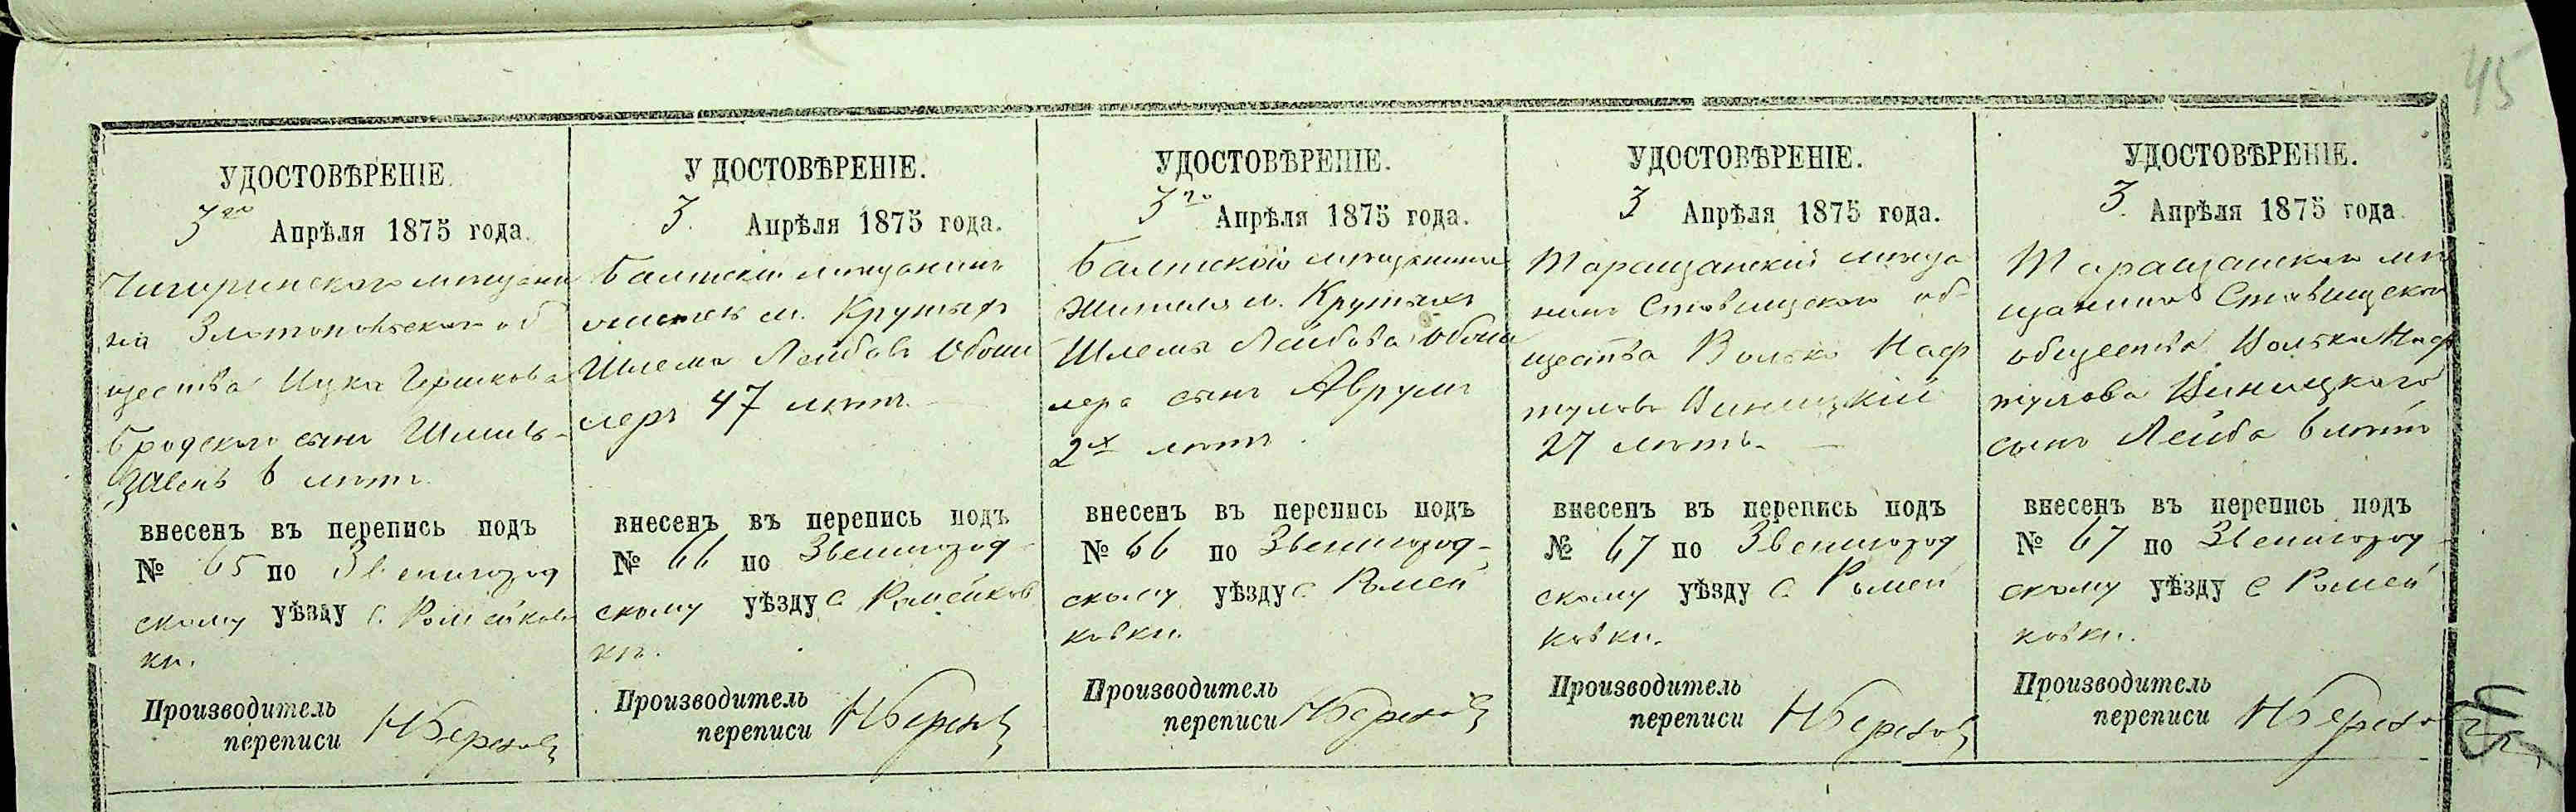 45
УДОСТОВѢРЕНІЕ.
3го Апрѣля 1875 года.
Чигиринскаго мѣщани
на Златопольскаго об
щества Ицка Гершкова
Бродскаго сынъ Шмиль-
Завель 6 лѣтъ
внесенъ въ перепись подъ
№ 65 по Звенигород
скому уѣзду с. Ромейков
ки.
Производитель
переписи
УДОСТОВѢРЕНІЕ.
3. Апрѣля 1875 года.
Балтскій мѣщанинъ
житель м. Крутыхъ
Шлема Лейбовъ Обош
леръ 47 лѣтъ.
внесенъ въ перепись подъ
№ 66 по Звенигород
скому уѣзду с Ромейков
ки.
Производитель
переписи
УДОСТОВѢРЕНІЕ.
3го Апрѣля 1875 года.
Балтскаго мѣщанина
жителя м. Крутыхъ
Шлемы Лейбова
лера сынъ Аврумъ
2х лѣтъ.
внесенъ въ перепись подъ
№ 66 по Звенигород-
скому уѣзду с Ромей
ковки.
Производитель
переписи
УДОСТОВѢРЕНІЕ.
3 Апрѣля 1875 года.
Таращанскій мѣща
нинъ Ставищскаго об-
щества Волько Наф
туловъ Виницкій
27 лѣтъ.
внесенъ въ перепись подъ
№ 67 по Звенигород
скому уѣзду с Ромей
ковки.
Производитель
переписи
УДОСТОВѢРЕНІЕ.
3. Апрѣля 1875 года
Таращанскаго мѣ
щанина Ставищскаго
общества Волька Наф
тулова Виницкаго
сынъ Лейба 6 лѣтъ
внесенъ въ перепись подъ
№ 67 по Звенигород
скому уѣзду с Ромей
ковки.
Производитель
переписи